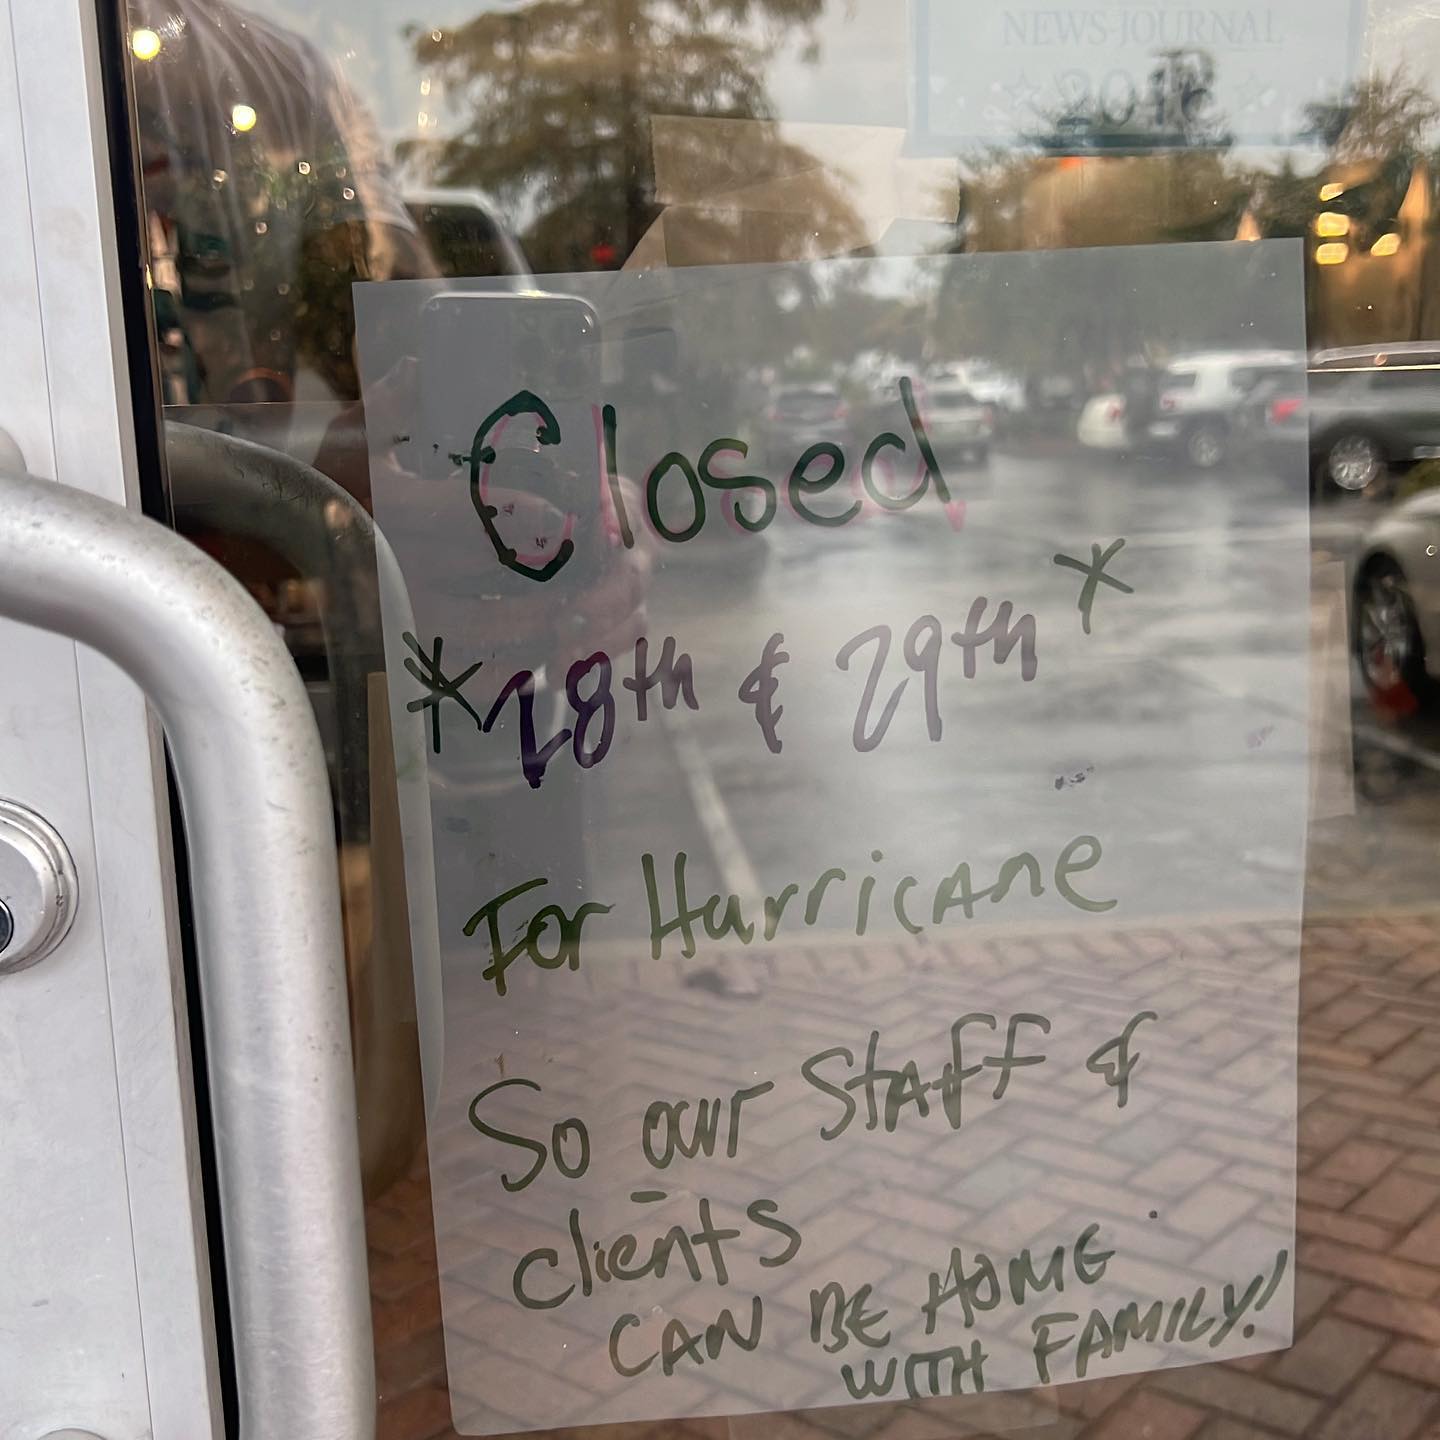 NEWS-JOURNAL
Closed
*28th & 29th*
For Hurricane
So our Staff &
clients
CAN BE HOME
WITH FAMILY!